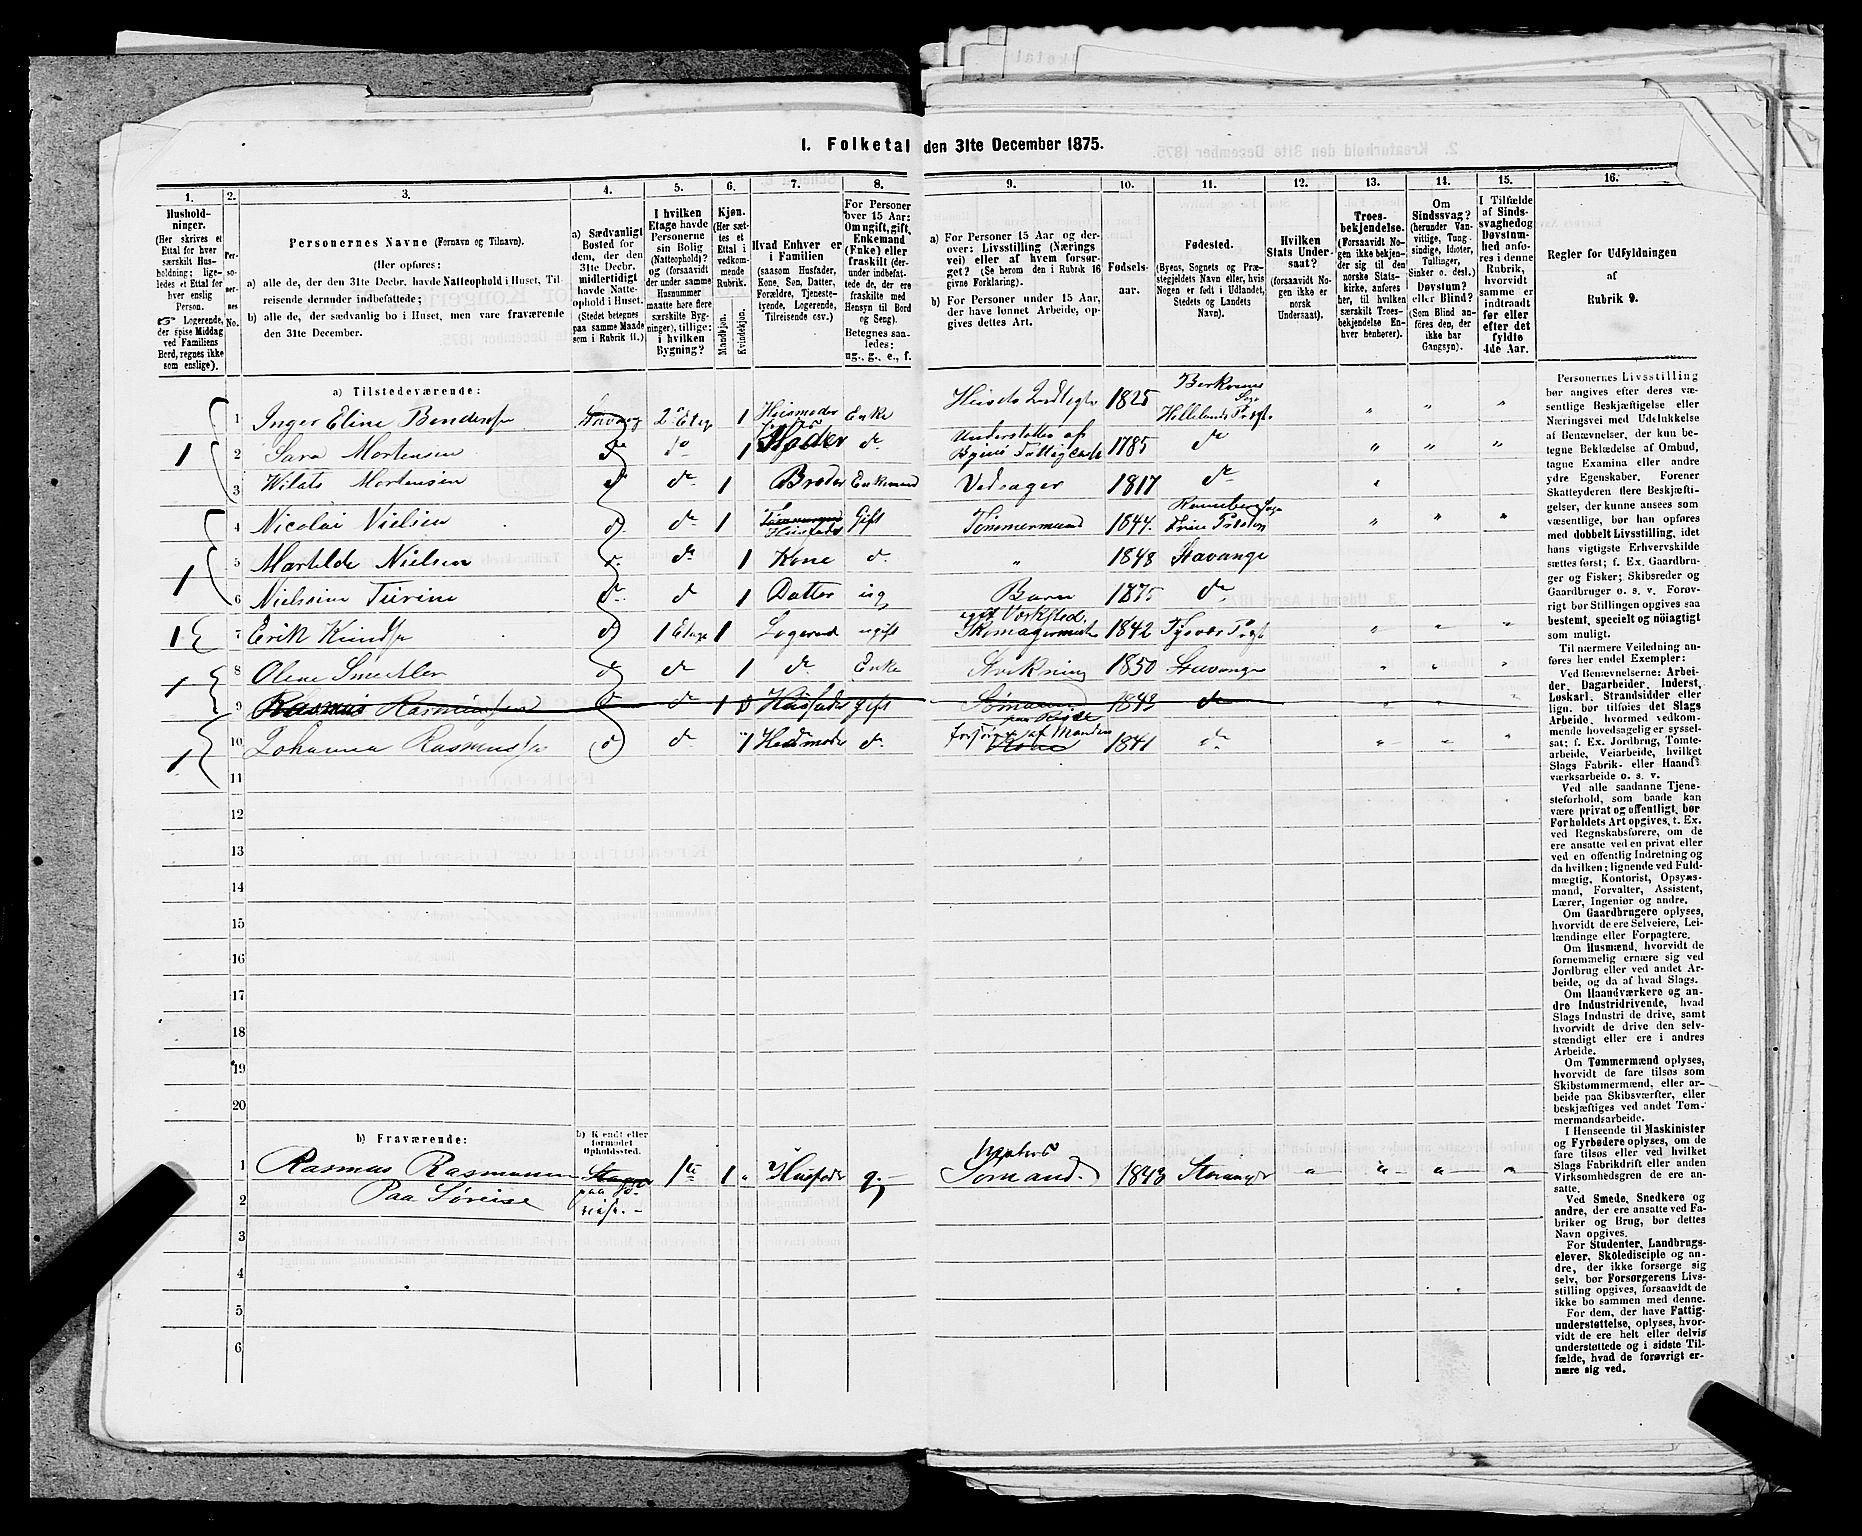 1. Folketal den 31te December 1875.
1. 2. 3. 4. 5. 6. 7. 8. 9. 10. 11. 12. 13. 14. 15. 16.
Hushold-
ninger.
(Her skrives et
Ettal for hver
særskilt Hus-
holdning; lige-
ledes et Ettal for
hver enslig
Person.
☞ Logerende,
der spise Middag
ved Familiens
Bord, regnes ikke
som enslige).
Per-
so-
ner-
nes
No.
Personernes Navne (Fornavn og Tilnavn).
(Her opføres:
a) alle de, der den 31te Decbr. havde Natteophold i Huset, Til-
reisende derunder indbefattede;
b) alle de, der sædvanlig bo i Huset, men vare fraværende
den 31te December.
a) Sædvanligt
Bosted for
dem, der den
31te Decbr.
midlertidigt
havde Natte-
ophold i Huset.
(Stedet betegnes
paa samme Maade
som i Rubrik 11.)
I hvilken
Etage havde
Personerne
sin Bolig
(Natteophold)?
og (forsaavidt
der under samme
Husnummer
maatte høre flere
særskilte Byg-
ninger), tillige:
i hvilken
Bygning?
Kjøn.
(Her sæt-
tes et
Ettal i
vedkom-
mende
Rubrik.
Mandkjøn.
Kvindekjøn.
Hvad Enhver er
i Familien
(saasom Husfader,
Kone, Søn, Datter,
Forældre, Tjeneste-
tyende, Logerende,
Tilreisende osv.)
For Personer
over 15 Aar:
Om ugift, gift,
Enkemand
(Enke) eller
fraskilt (der-
under indbefat-
tede de, der ere
fraskilte med
Hensyn til Bord
og Seng).
Betegnes saa-
ledes:
ug., g., e., f.
a) For Personer 15 Aar og der-
over: Livsstilling (Nærings
vei) eller af hvem forsør-
get? (Se herom den i Rubrik 16
givne Forklaring).
b) For Personer under 15 Aar,
der have lønnet Arbeide, op-
gives dettes Art.
Fødsels-
aar.
Fødested.
(Byens, Sognets og Præ-
stegjeldets Navn eller, hvis
Nogen er født i Udlandet,
Stedets og Landets
Navn).
Hvilken
Stats Under-
saat?
(forsaavidt No-
gen ikke er
norsk
Undersaat).
Troes-
bekjendelse.
(Forsaavidt No-
gen ikke bekjen-
der sig til den
norske Stats-
kirke, anføres
her, til hvilken
særskilt Troes-
bekjendelse En-
hver henhører).
Om
Sindssvag?
(herunder Van-
vittige, Tung-
sindige, Idioter,
Tullinger,
Sinker o. desl.)
Døvstum?
eller Blind?
(Som Blind an-
føres den, der
ikke har
Gangsyn).
I Tilfælde
af Sinds-
svaghed og
Døvstum-
hed anfø-
res i denne
Rubrik,
hvorvidt
samme er
indtraadt
før eller
efter det
fyldte
4de Aar.
Regler for Udfyldningen
af
Rubrik 9.
a) Tilstedeværende:
1 Inger Eline Bendersen 2 Etage 1 Husmoder Enke 1825 Hellelands
1 2 Sara Mortensen do 1 Moder d. Understøttes af Byens 1785 do
3 Mortensen do 1 Broder Enkemand Vedsager 1817 do
4 Nicolai Nielsen do 1 Gift Tømmermand 1844
1 5 Martilde Nielsen do 1 Kone d. " 1848 Stavanger
6 Nielssine Turine d 1 Datter ug Barn 1875 do
1 7 Erik Knudsen 1 Etage 1 Logerend ugift eget Værksted. Skomagermester 1842 Tysvær
1 8 Olene do 1 do Enke Strikning 1850 Stavanger
9 Rasmus Rasmussen do 1 Husfader gift Sømand 1843 do
1 10 Johanna Rasmussen do 1 Husmoder d. forsørges af Manden 1841 do
11
12
13
14
15
16
17
18
19
20
b) Fraværende:
b) Kendt eller
formodet
Opholdssted.
1 Rasmus Rasmussen 1te 1 Husfader g. Sømand. 1843 Stavanger
2 Paa Søreise
3
4
5
6
Personernes Livsstilling
bør angives efter deres væ-
sentlige Beskjæftigelse eller
Næringsvei med Udelukkelse
af Benævnelser, der kun be-
tegne Beklædelse af Ombud,
tagne Examina eller andre
ydre Egenskaber. Forener
Skatteyderen flere Beskjæfti-
gelser, der kunne ansees som
væsentlige, bør han opføres
med dobbelt Livsstilling, idet
hans vigtigste Erhvervskilde
sættes først; f. Ex. Gaardbru-
ger og Fisker; Skibsreder og
Gaardbruger o. s. v. Forøv-
rigt bør Stillingen opgives saa
bestemt, specielt og nöiagtigt
som muligt.
Til nærmere Veiledning an-
føres her endel Exempler:
Ved Benævnelserne: Arbei-
der, Dagarbeider, Inderst,
Løskarl, Strandsidder eller
lign. bør tilføies det Slags
Arbeide, hvormed vedkom-
mende hovedsagelig er syssel-
sat; f. Ex. Jordbrug, Tomte-
arbeide, Veiarbeide, hvilket
Slags Fabrik- eller Haand-
værksarbeide o. s. v.
Ved alle saadanne Tjene-
steforhold, som baade kan
være privat og offentligt, bør
Forholdets Art opgives, t. Ex.
ved Regnskabsførere, om de
ere ansatte ved en privat eller
ved en offentlig Indretning og
da hvilken; lignende ved Fuld-
mægtig, Kontorist, Opsyns-
mand, Forvalter, Assistent,
Lærer, Ingeniør og andre.
Om Gaardbrugere oplyses,
hvorvidt de ere Selveiere, Lei-
lændinge eller Forpagtere.
Om Husmænd, hvorvidt de
fornemmelig ernære sig ved
Jordbrug eller ved andet Ar-
beide, og da af hvad Slags.
Om Haandværkere og an-
dre Industridrivende, hvad
Slags Industri de drive, samt
hvorvidt de drive den selv-
stændigt eller ere i andres
Arbeide.
Om Tømmermænd oplyses,
hvorvidt de fare tilsøs som
Skibstømmermænd, eller ar-
beide paa Skibsværfter, eller
beskjæftiges ved andet Tøm-
mermandsarbeide.
I Henseende til Maskinister
og Fyrbødere oplyses, om de
fare tilsøs eller ved hvilket
Slags Fabrikdrift eller anden
Virksomhedsgren de ere an-
satte.
Ved Smede, Snedkere og
andre, der ere ansatte ved Fa-
briker og Brug, bør dettes
Navn opgives.
For Studenter, Landbrugs-
elever, Skoledisciple og an-
dre, der ikke forsørge sig
selv, bør Forsørgerens Livs-
stilling opgives, forsaavidt de
ikke bo sammen med denne.
For dem, der have Fattig-
understøttelse, oplyses, hvor-
vidt de ere helt eller delvis
understøttede og i sidste Til-
fælde, hvad de forøvrigt er-
nære sig ved.